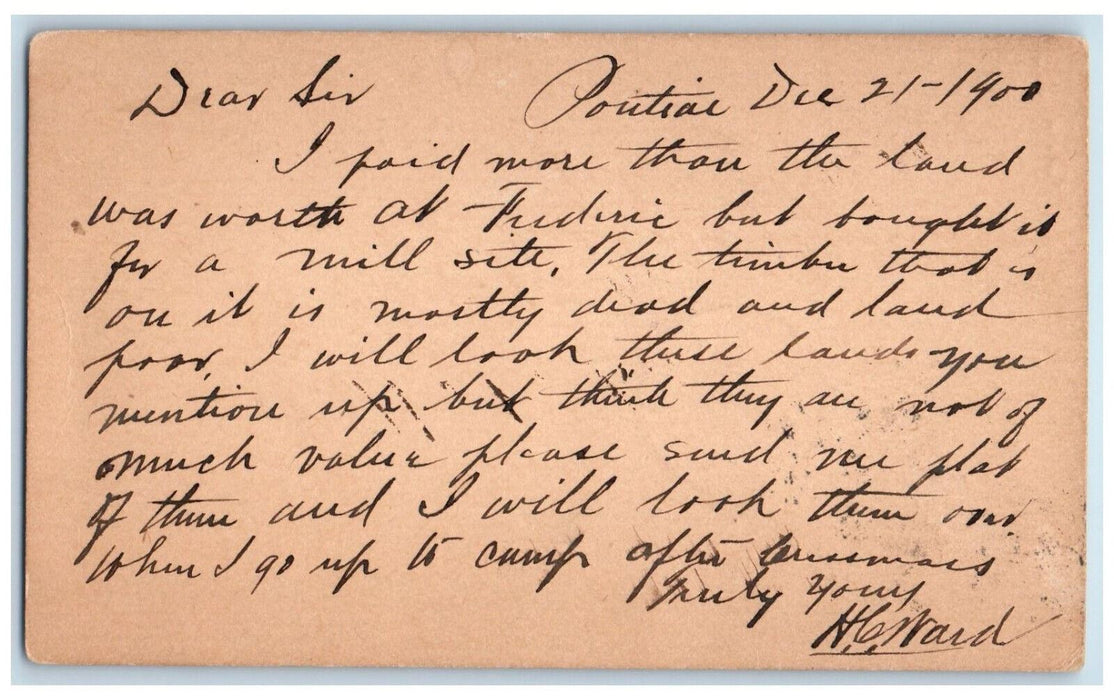 Dear Sir Pontiac Dec 21-1900
I paid more than the land
was worth at Frederic but bought it
for a mill site. The timber that is
on it is mostly dead and land
poor, I will look these lands you
mention up but think they are not of
much value please send me plat
of them and I will look them over
when I go up to camp after
Truly yours
H.C. Ward